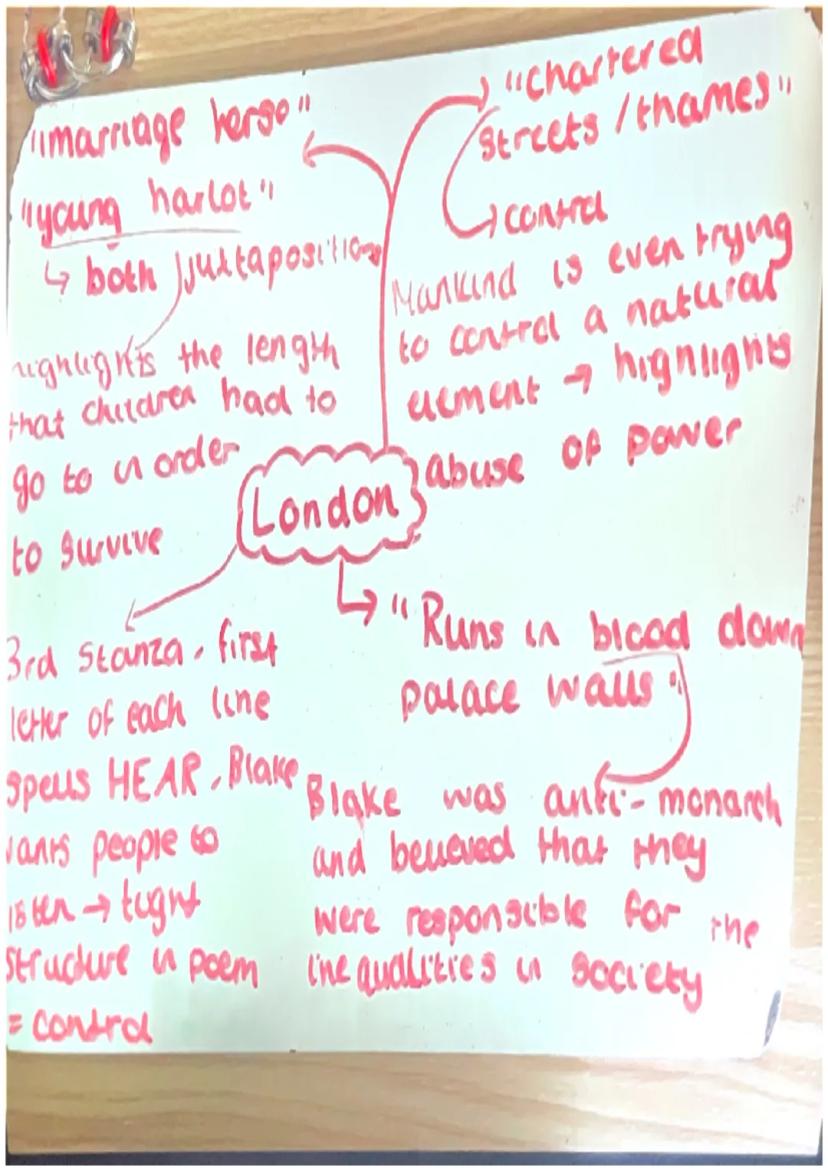 "marriage herse"
"young harlot"
↳ both juxtapositions
highlights the length
that children had to
go to in order
to survive
"chartered
streets / thames"
↳ control
Mankind is even trying
to control a natural
element → highlights
abuse of power
London
3rd stanza, first
letter of each line
spells HEAR, Blake
wants people to
listen → tight
structure in poem
= control
"Runs in blood down
palace walls"
Blake was anti-monarch
and believed that they
were responsible for the
inequalities in society